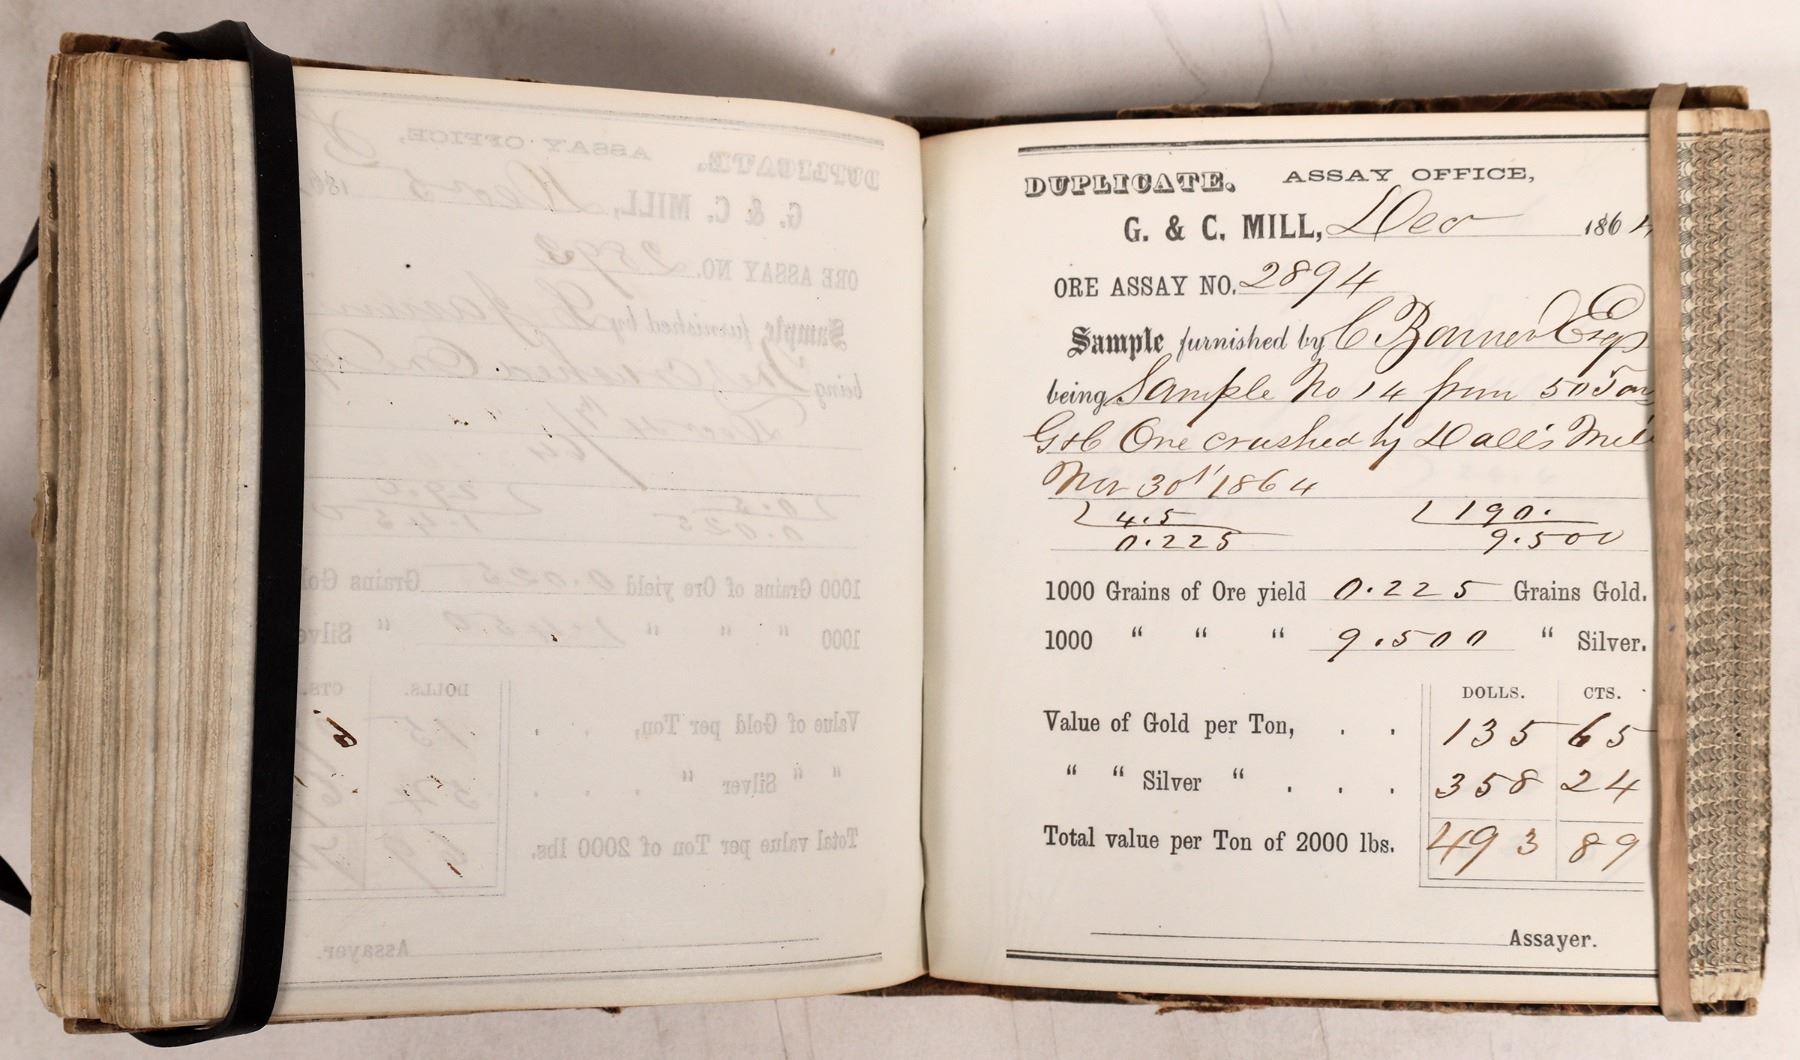 DUPLICATE. ASSAY OFFICE,
G. & C. MILL, Dec 1864
ORE ASSAY NO. 2894
Sample furnished by C. Bonner Esq
being Sample No 14 from 50 Tons
G & C Ore crushed by Dall's Mill
Nov 30' 1864
4.5 190.
0.225 9.500
1000 Grains of Ore yield 0.225 Grains Gold.
1000 " " " 9.500 " Silver.
DOLLS. CTS.
Value of Gold per Ton, . . 135 65
" " Silver " . . . 358 24
Total value per Ton of 2000 lbs. 493 89
Assayer.